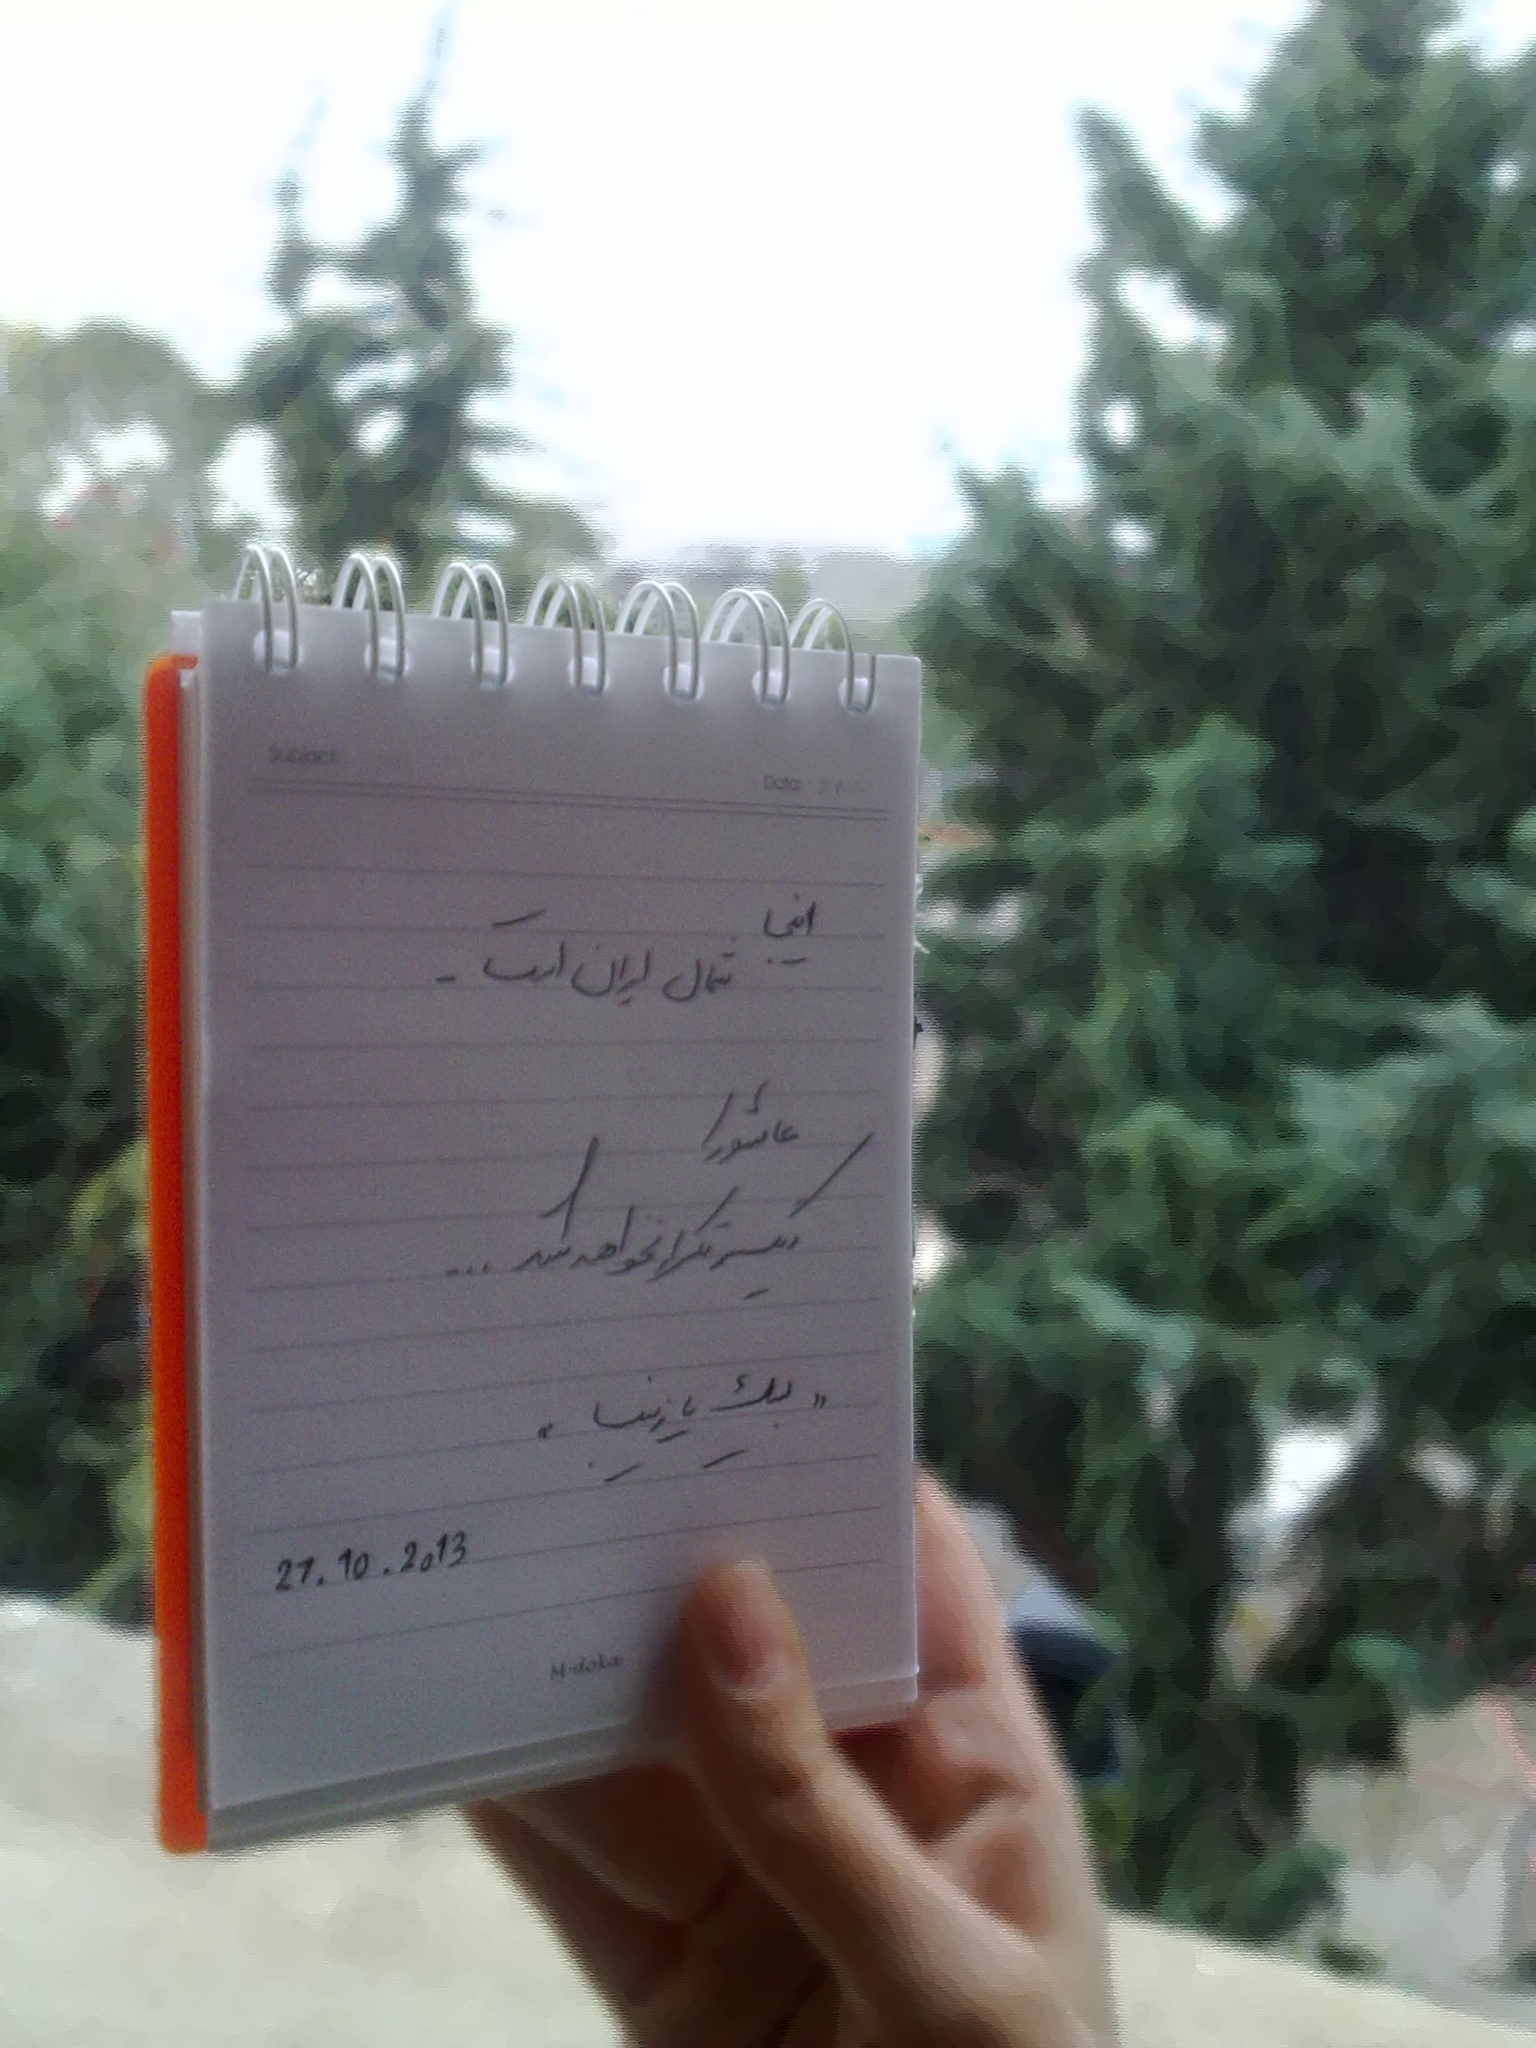 Subject:
Date:
اینجا
شمال ایران است -
عاشورا
دیگر تکرار نخواهد شد ...
"لبیک یا زینب"
27.10.2013